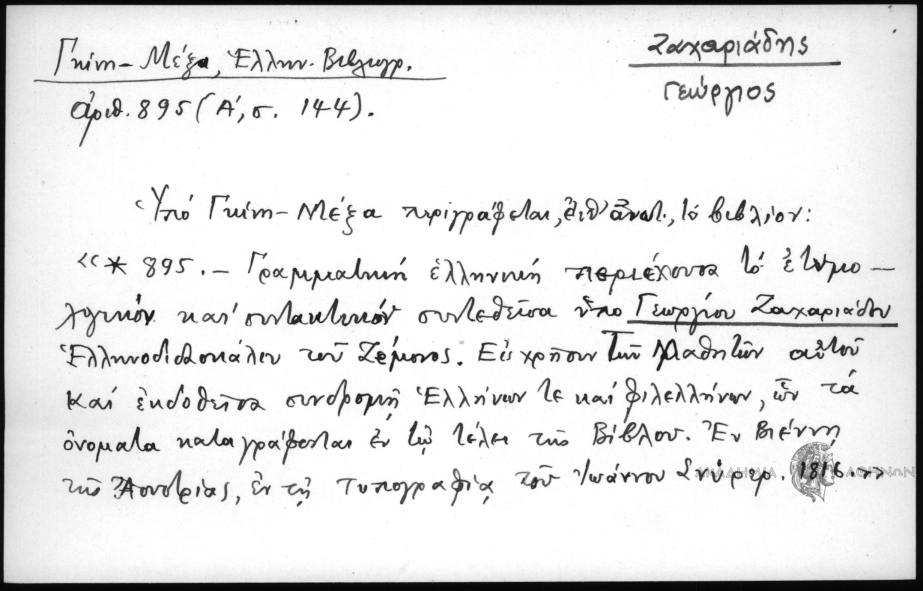 Γκίνη - Μέξα, Ἑλλην. Βιβλιογρ.
ἀριθ. 895 (Α΄, σ. 144).
Ζαχαριάδης
Γεώργιος
Ὑπό Γκίνη - Μέξα περιγράφεται, ἀνωτ., τό βιβλίον:
«* 895. — Γραμματική ἑλληνική περιέχουσα τό ἐτυμο-
λογικόν καί συντακτικόν συντεθεῖσα ὑπό Γεωργίου Ζαχαριάδου
Ἑλληνοδιδασκάλου τοῦ Ζέμονος. Εἰς χρῆσιν τῶν Μαθητῶν αὐτοῦ
Καί ἐκδοθεῖσα συνδρομῇ Ἑλλήνων τε καί φιλελλήνων, ὧν τά
ὀνόματα καταγράφονται ἐν τῷ τέλει τῆς Βίβλου. Ἐν Βιέννῃ
τῆς Ἀουστρίας, ἐν τῇ τυπογραφίᾳ τοῦ Ἰωάννου Σνύρερ. 1816.»